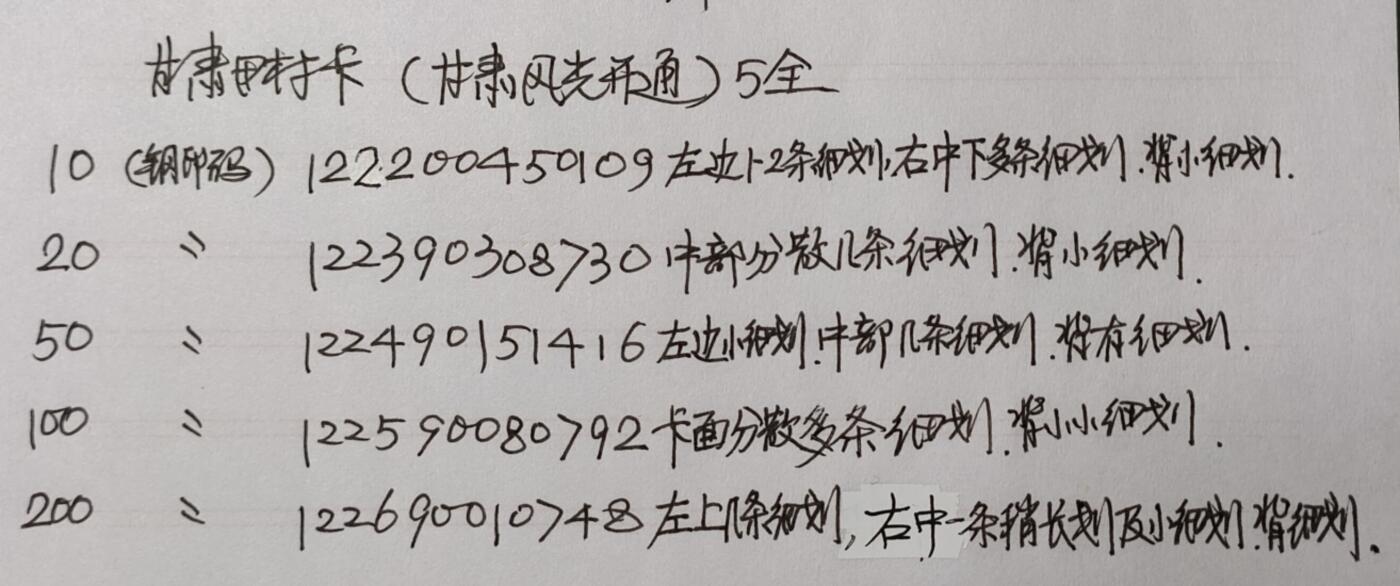 甘肃田村卡（甘肃风光开通）5全
10（钢印码）122200450109左边1-2条细划,右中下多条细划.背小细划.
20 〃 122390308730中部分散几条细划.背小细划.
50 〃 122490151416左边小细划.中部几条细划.背有细划.
100 〃 122590080792卡面分散多条细划.背小小细划.
200 〃 122690010748左上几条细划,右中一条稍长划及小细划.背细划.